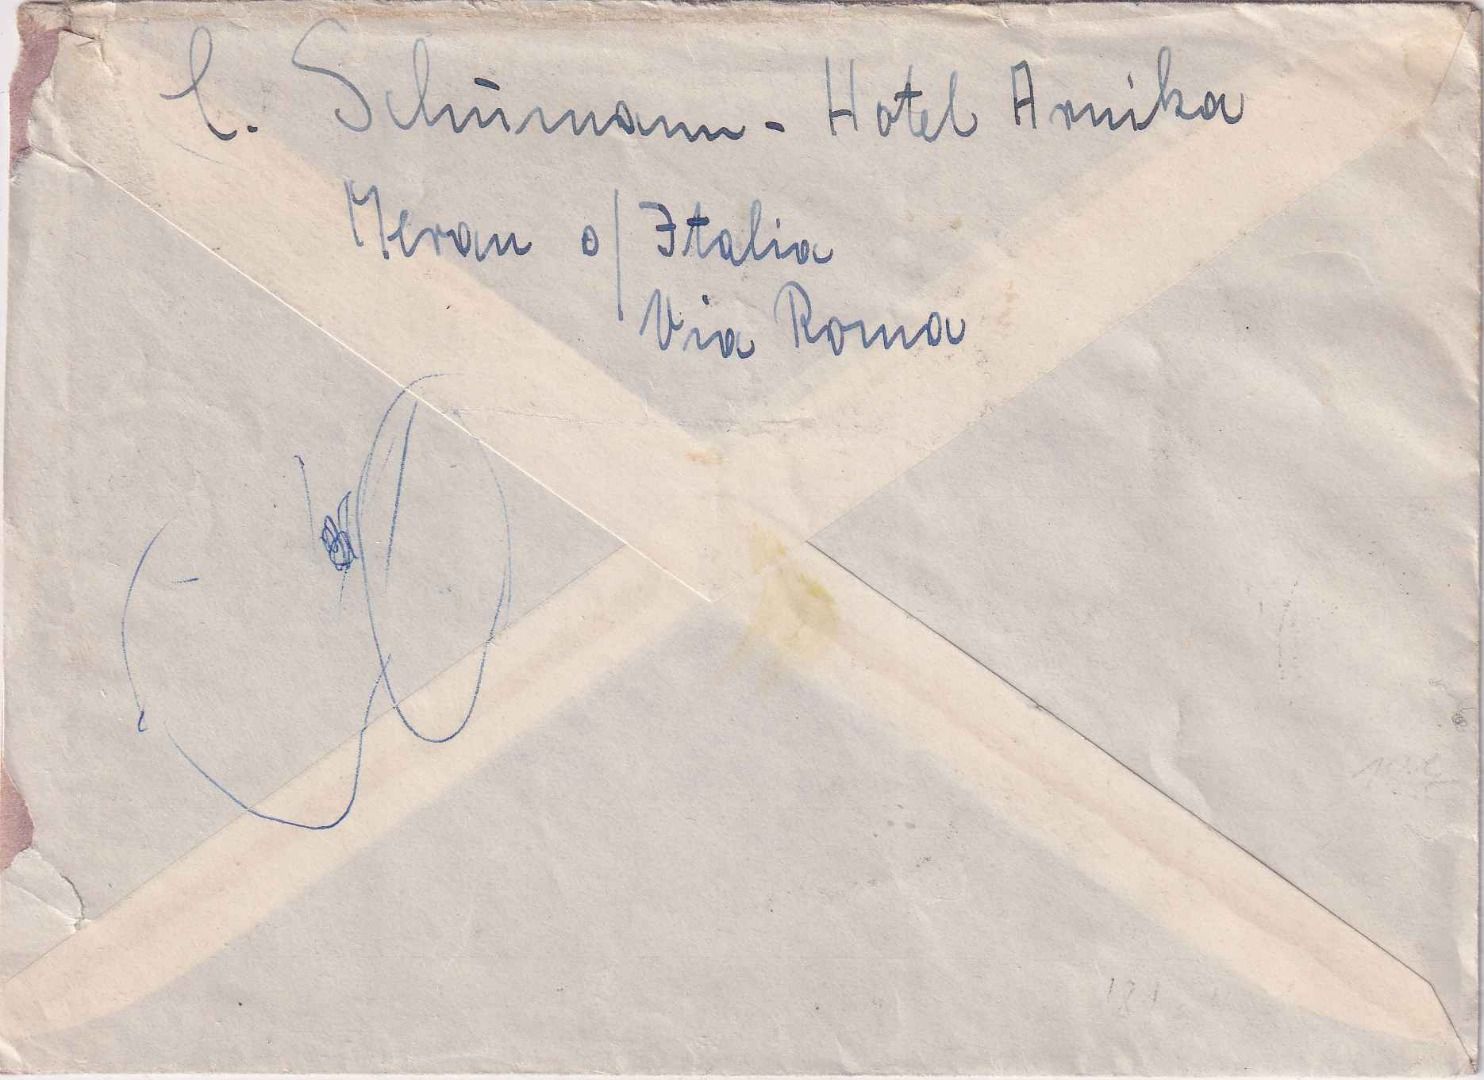 C. Schümann - Hotel Arnika
Meran o/Italia
Via Roma